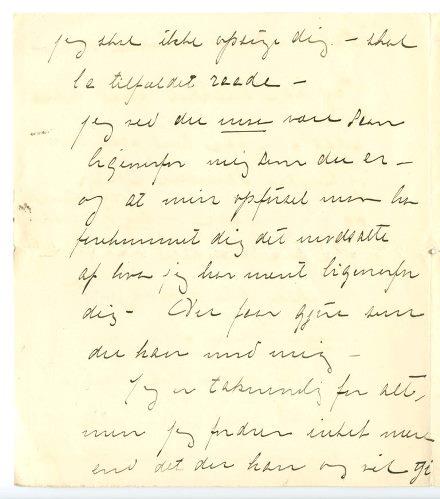 jeg skal ikke opsøge dig – skal
la tilfældet raade –
jeg ved du maa være saan
ligeoverfor mig som du er –
og at min opførsel maa ha
forekommet dig det modsatte
af hva jeg har ment ligeoverfor
dig – Du faar gjøre som
du kan med mig –
Jeg er taknemlig for alt,
men jeg fordrer intet mere
end det du kan og vil gi